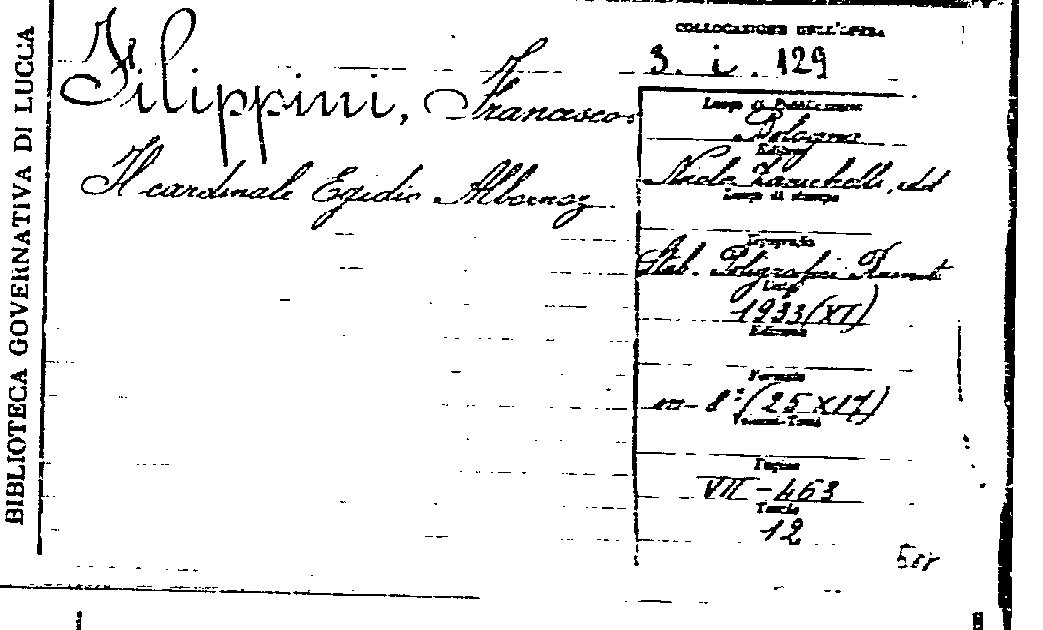 BIBLIOTECA GOVERNATIVA DI LUCCA
COLLOCAZIONE DELL'OPERA
3. i. 129
Filippini, Francesco
Il cardinale Egidio Albornoz
Luogo di Pubblicazione
Bologna
Editore
Nicola Zanichelli, ed
Luogo di stampa
Tipografia
Stab. Poligrafici Riuniti
1933 (XI)
Edizione
Formato
in-8° (25 X 17)
Volumi-Tomi
Pagine
VII-463
Tavole
12